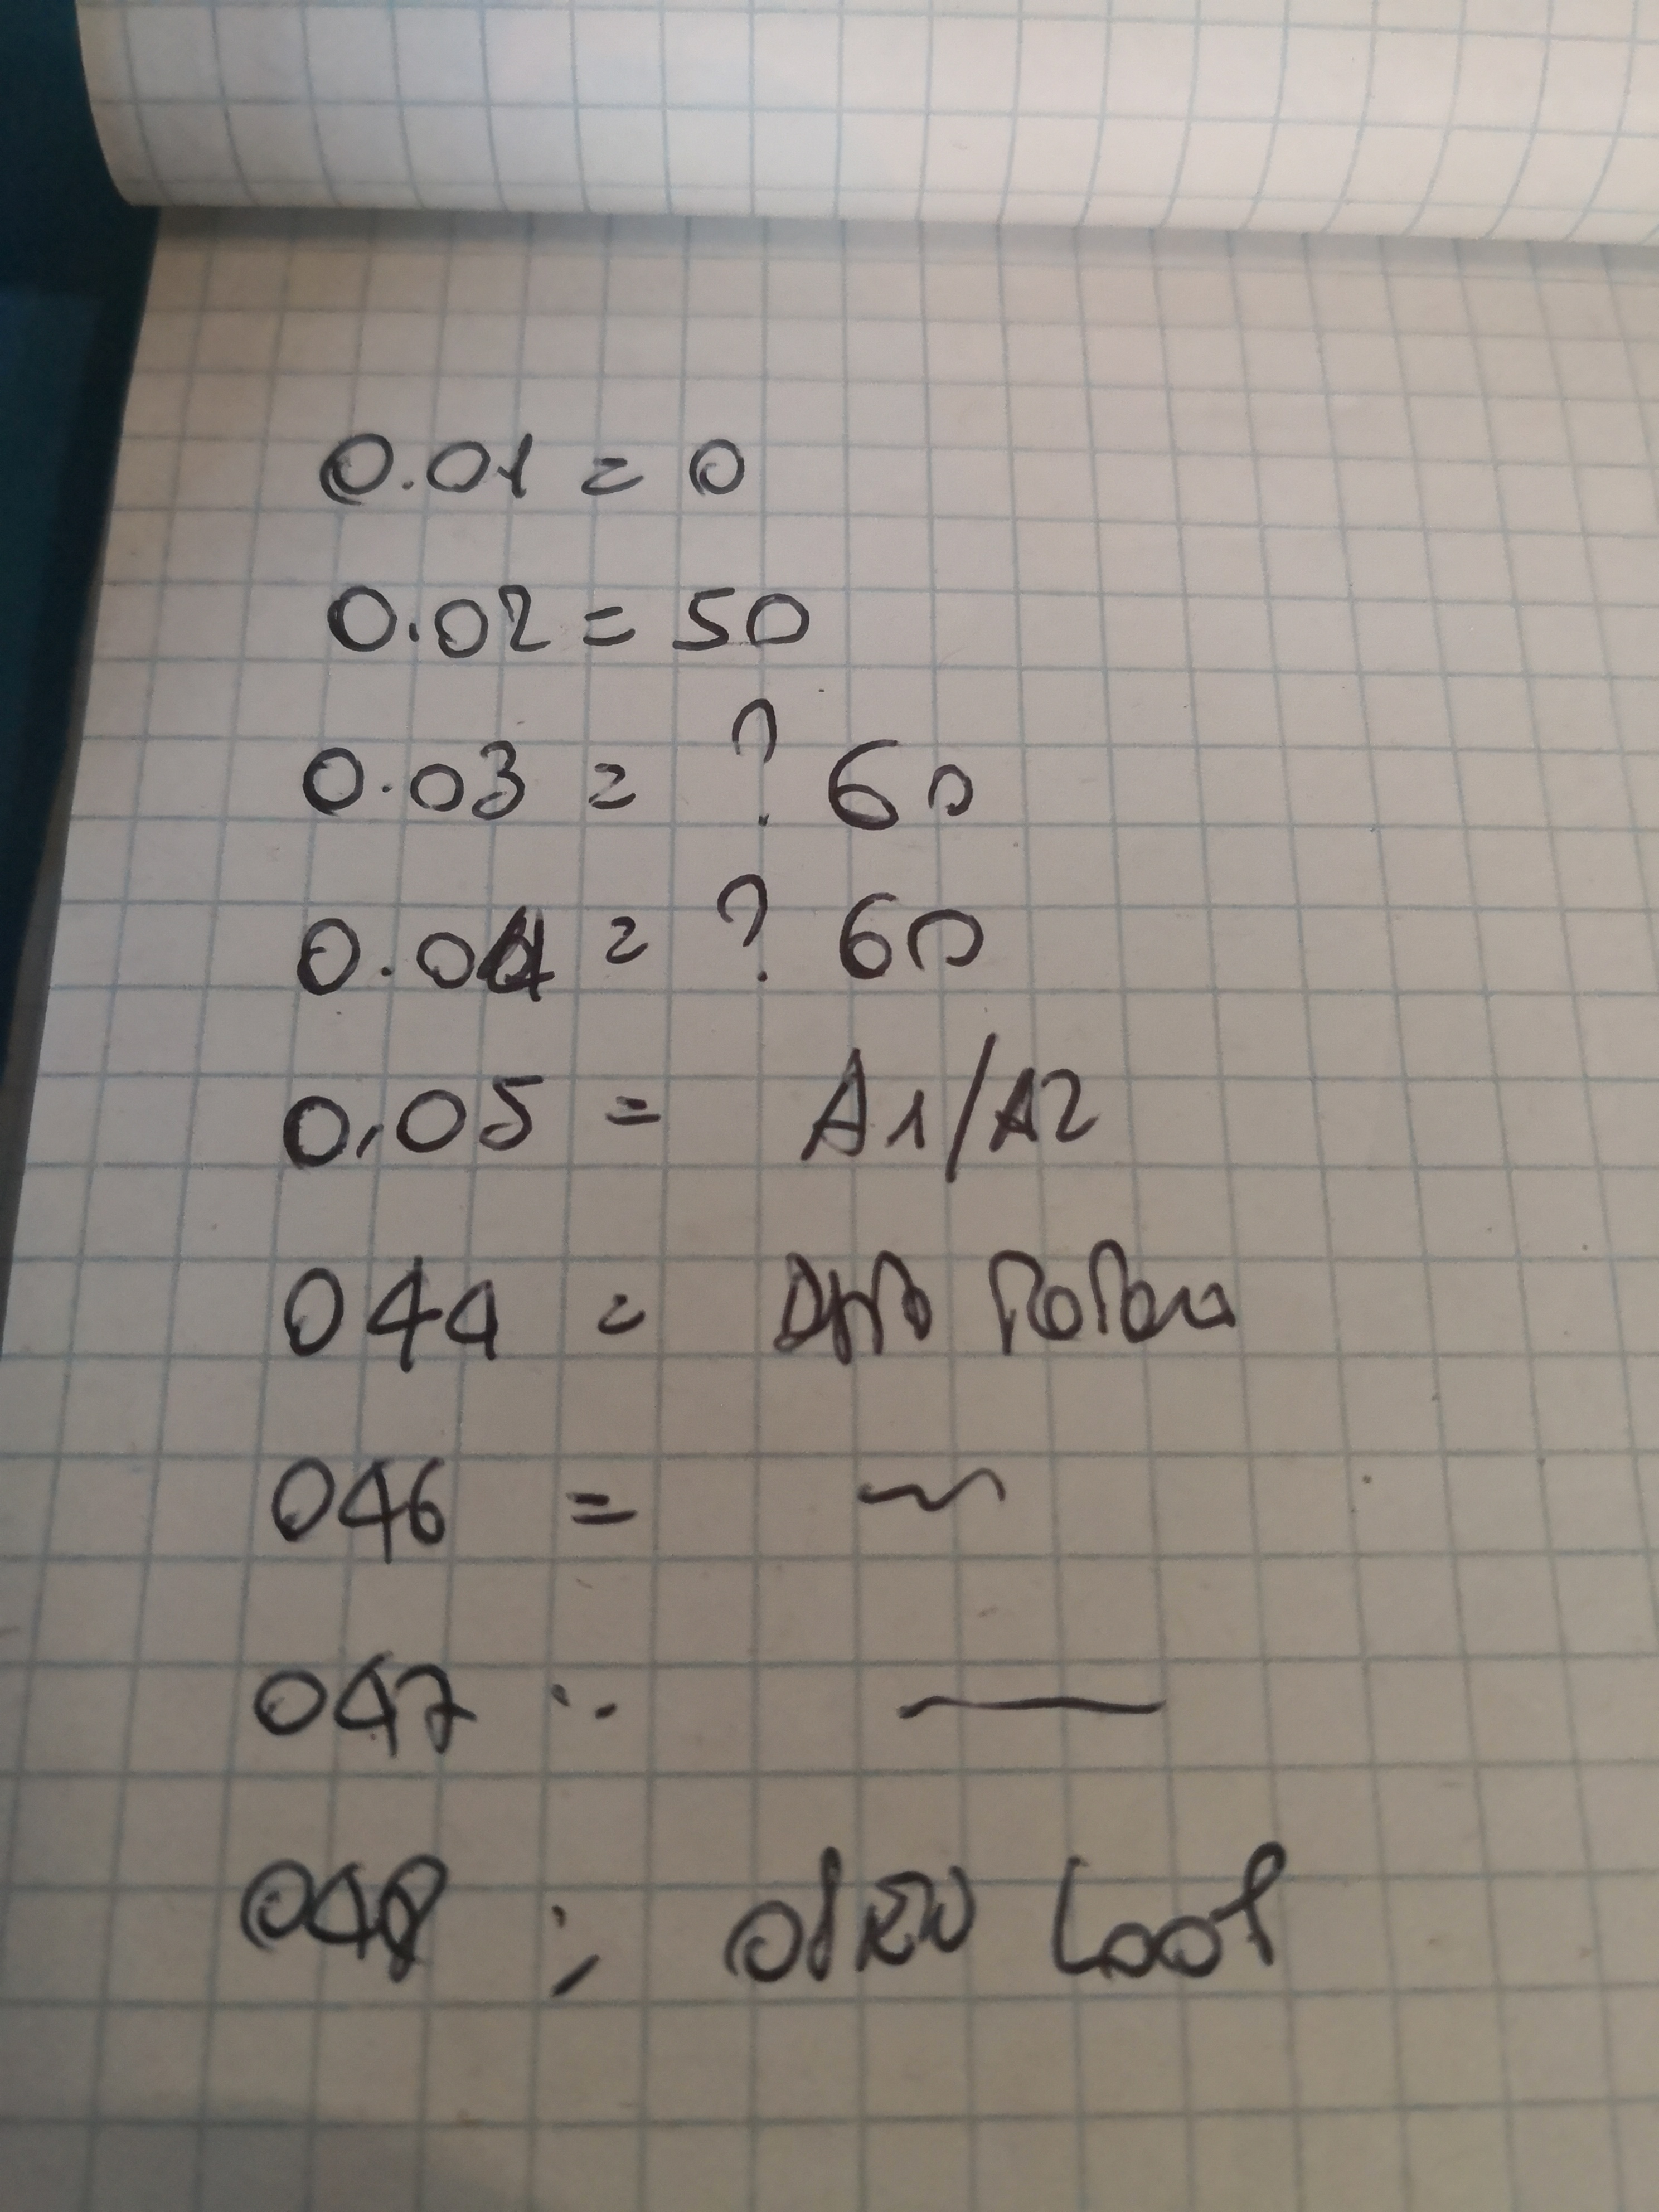 0.01 = 0
0.02 = 50
0.03 = ? 60
0.04 = ? 60
0.05 = A1/A2
044 =
046 = ~
047 : —
048 : open loop